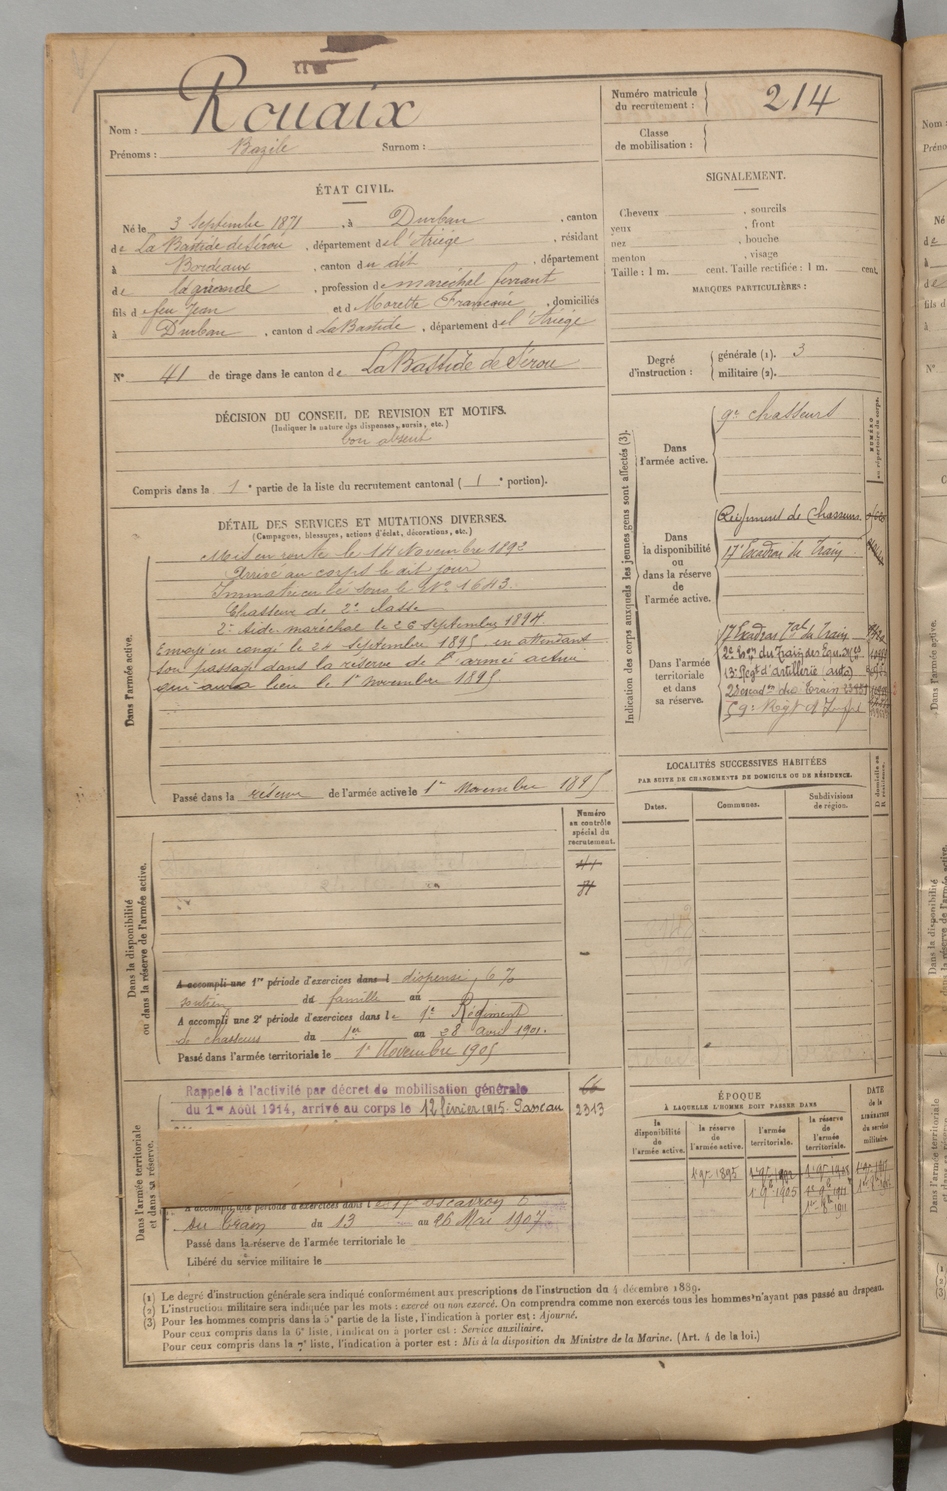 Nom : Rouaix
Prénoms : Bazile Surnom :
Numéro matricule du recrutement : 214
Classe de mobilisation :
ÉTAT CIVIL.
Né le 3 Septembre 1871, à Durban, canton
de La Bastide de Sérou, département de l'Ariège, résidant
à Bordeaux, canton du dit, département
de la gironde, profession de maréchal ferrant
fils de feu Jean et de Morette Françoise, domiciliés
à Durban, canton d La Bastide, département de l'Ariège
N° 41 de tirage dans le canton de La Bastide de Sérou
DÉCISION DU CONSEIL DE REVISION ET MOTIFS.
(Indiquer la nature des dispenses, sursis, etc.)
bon absent
Compris dans la 1e partie de la liste du recrutement cantonal (1e portion).
DÉTAIL DES SERVICES ET MUTATIONS DIVERSES.
(Campagnes, blessures, actions d'éclat, décorations, etc.)
Dans l'armée active.
Mis en route le 14 Novembre 1892
Arrivé au corps le dit jour
Immatriculé sous le N° 1643.
Chasseur de 2e classe
2e Aide maréchal le 26 septembre 1894
Envoyé en congé le 24 septembre 1895 en attendant
son passage dans la réserve de l'armée active
qui aura lieu le 1er novembre 1895
Passé dans la réserve de l'armée active le 1er Novembre 1895
Dans la disponibilité ou dans la réserve de l'armée active.
Numéro au contrôle spécial du recrutement.
A accompli une 1re période d'exercices dans l dispensé, 6 %
soutien de famille au
A accompli une 2e période d'exercices dans le 1er Régiment
de chasseurs du 1er au 28 avril 1901.
Passé dans l'armée territoriale le 1er Novembre 1905
Dans l'armée territoriale et dans sa réserve.
Rappelé à l'activité par décret de mobilisation générale
du 1er Août 1914, arrivé au corps le 12 février 1915.
2313
A accompli une période d'exercices dans le 17 escadron
du train du 13 au 26 Mai 1907
Passé dans la réserve de l'armée territoriale le
Libéré du service militaire le
SIGNALEMENT.
Cheveux , sourcils
yeux , front
nez , bouche
menton , visage
Taille : 1 m. cent. Taille rectifiée : 1 m. cent.
MARQUES PARTICULIÈRES :
Degré d'instruction : générale (1). 3
militaire (2).
Indication des corps auxquels les jeunes gens sont affectés (3).
NUMÉRO au répertoire du corps.
Dans l'armée active.
9e chasseurs
Dans la disponibilité ou dans la réserve de l'armée active.
Régiment de Chasseurs
17e Escadron du Train
Dans l'armée territoriale et dans sa réserve.
17 Escadron Tal du Train
13e Régt d'artillerie (auto)
LOCALITÉS SUCCESSIVES HABITÉES
PAR SUITE DE CHANGEMENTS DE DOMICILE OU DE RÉSIDENCE.
Dates. Communes. Subdivisions de région. D domicile ou R résidence.
ÉPOQUE
À LAQUELLE L'HOMME DOIT PASSER DANS
la disponibilité de l'armée active.
la réserve de l'armée active.
l'armée territoriale.
la réserve de l'armée territoriale.
DATE de la LIBÉRATION du service militaire.
1er 9bre 1895
1er 9bre 1905
(1) Le degré d'instruction générale sera indiqué conformément aux prescriptions de l'instruction du 4 décembre 1889.
(2) L'instruction militaire sera indiquée par les mots : exercé ou non exercé. On comprendra comme non exercés tous les hommes n'ayant pas passé au drapeau.
(3) Pour les hommes compris dans la 5e partie de la liste, l'indication à porter est : Ajourné.
Pour ceux compris dans la 6e liste, l'indication à porter est : Service auxiliaire.
Pour ceux compris dans la 7e liste, l'indication à porter est : Mis à la disposition du Ministre de la Marine. (Art. 4 de la loi.)